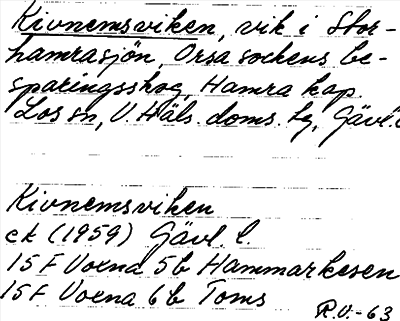 Kivnemsviken, vik i Stor-
hamrasjön, Orsa sockens be-
sparingsskog, Hamra kap.
Los sn, V. Häls. doms. tg, Gävl.
Kivnemsviken
ek (1959) Gävl. l.
15 F Voxna 5b Hammarkesen
15 F Voxna 6b Toms
R.V.-63